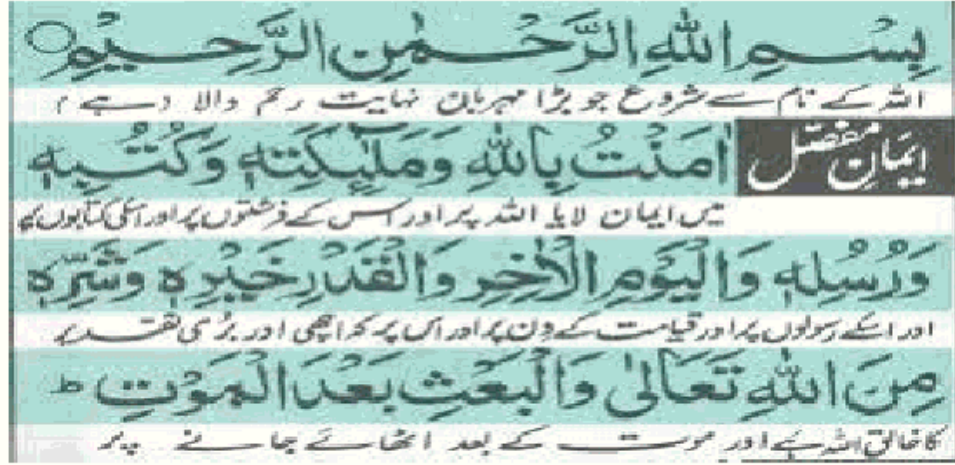 بِسْمِ اللهِ الرَّحْمٰنِ الرَّحِيْمِ
اللہ کے نام سے شروع جو بڑا مہربان نہایت رحم والا ہے
ایمانِ مفصّل اٰمَنْتُ بِاللهِ وَمَلٰٓئِكَتِهٖ وَكُتُبِهٖ
میں ایمان لایا اللہ پر اور اس کے فرشتوں پر اور اسکی کتابوں پر
وَرُسُلِهٖ وَالْيَوْمِ الْاٰخِرِ وَالْقَدْرِ خَيْرِهٖ وَشَرِّهٖ
اور اسکے رسولوں پر اور قیامت کے دِن پر اور اس پر کہ اچھی اور بُری تقدیر
مِنَ اللهِ تَعَالٰى وَالْبَعْثِ بَعْدَ الْمَوْتِ ط
کا خالق اللہ ہے اور موت کے بعد اٹھائے جانے پر